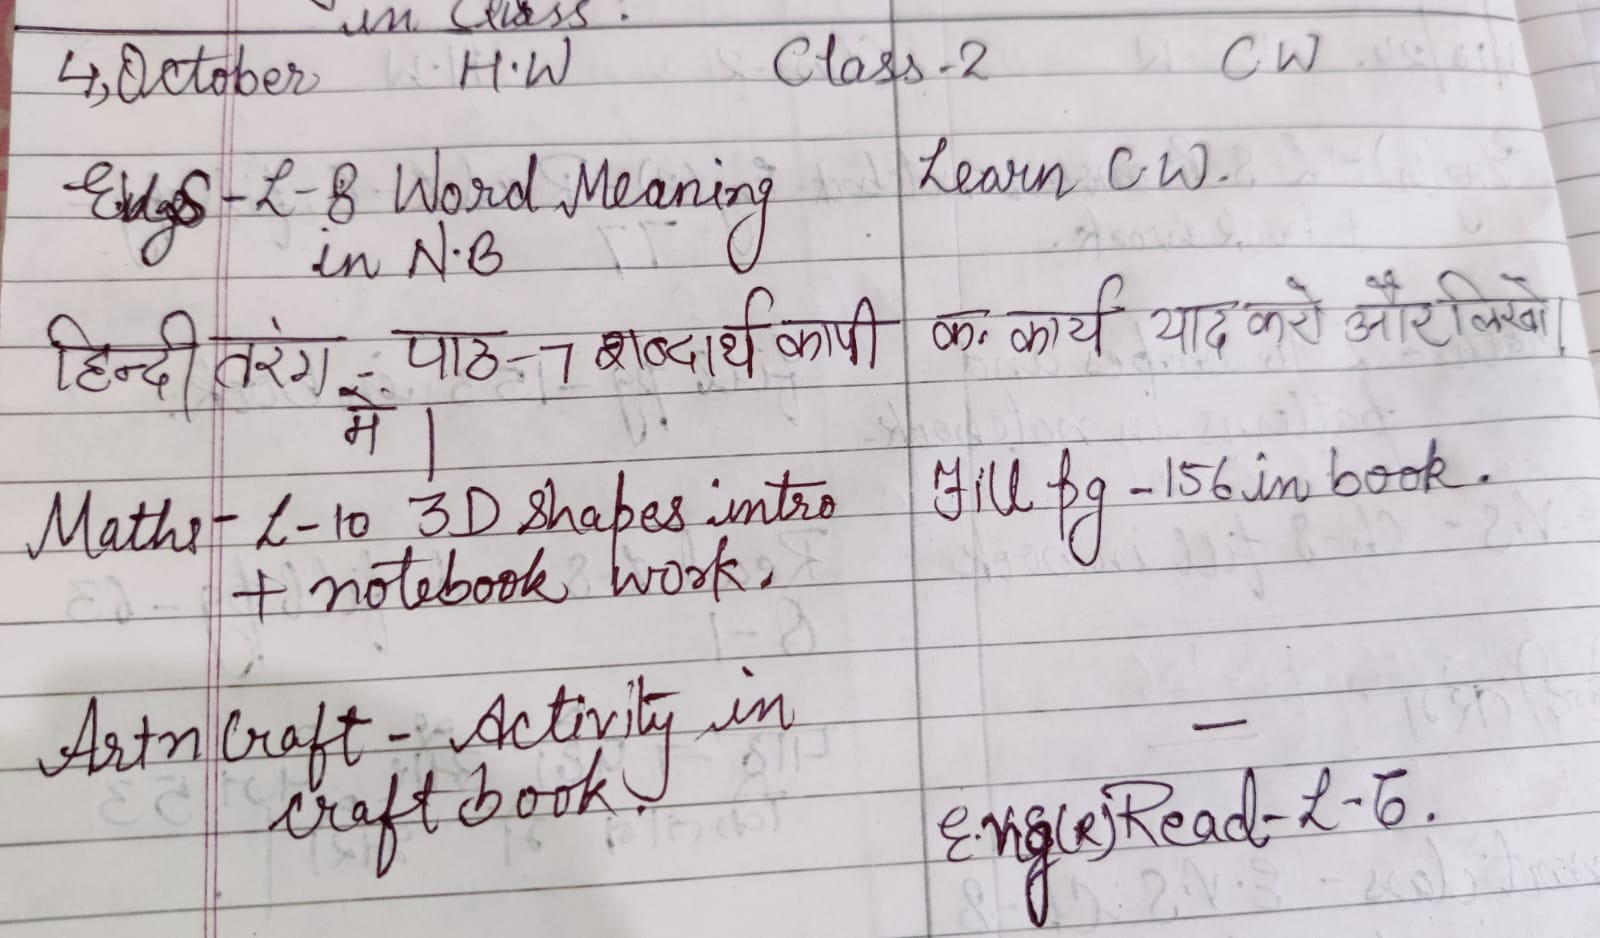 in Class.
4, October H.W Class-2 CW
L-8 Word Meaning Learn C.W.
in N.B
हिन्दी तरंग - पाठ-7 शब्दार्थ कापी क. कार्य याद करो और लिखो।
में ।
Maths - L-10 3D Shapes intro Fill pg - 156 in book.
+ notebook work.
Art n Craft - Activity in —
craft book. Eng(R) Read - L-6.